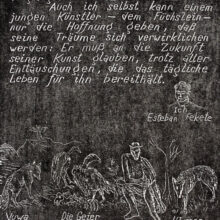 Auch ich selbst kann einem
jungen Künstler — dem Füchslein—
nur die Hoffnung geben, daß
seine Träume sich verwirklichen
werden: Er muß an die Zukunft
seiner Kunst glauben, trotz aller
Enttäuschungen, die das tägliche
Leben für ihn bereithält.
Ich
Esteban Fekete
Yuwa
Die Geier